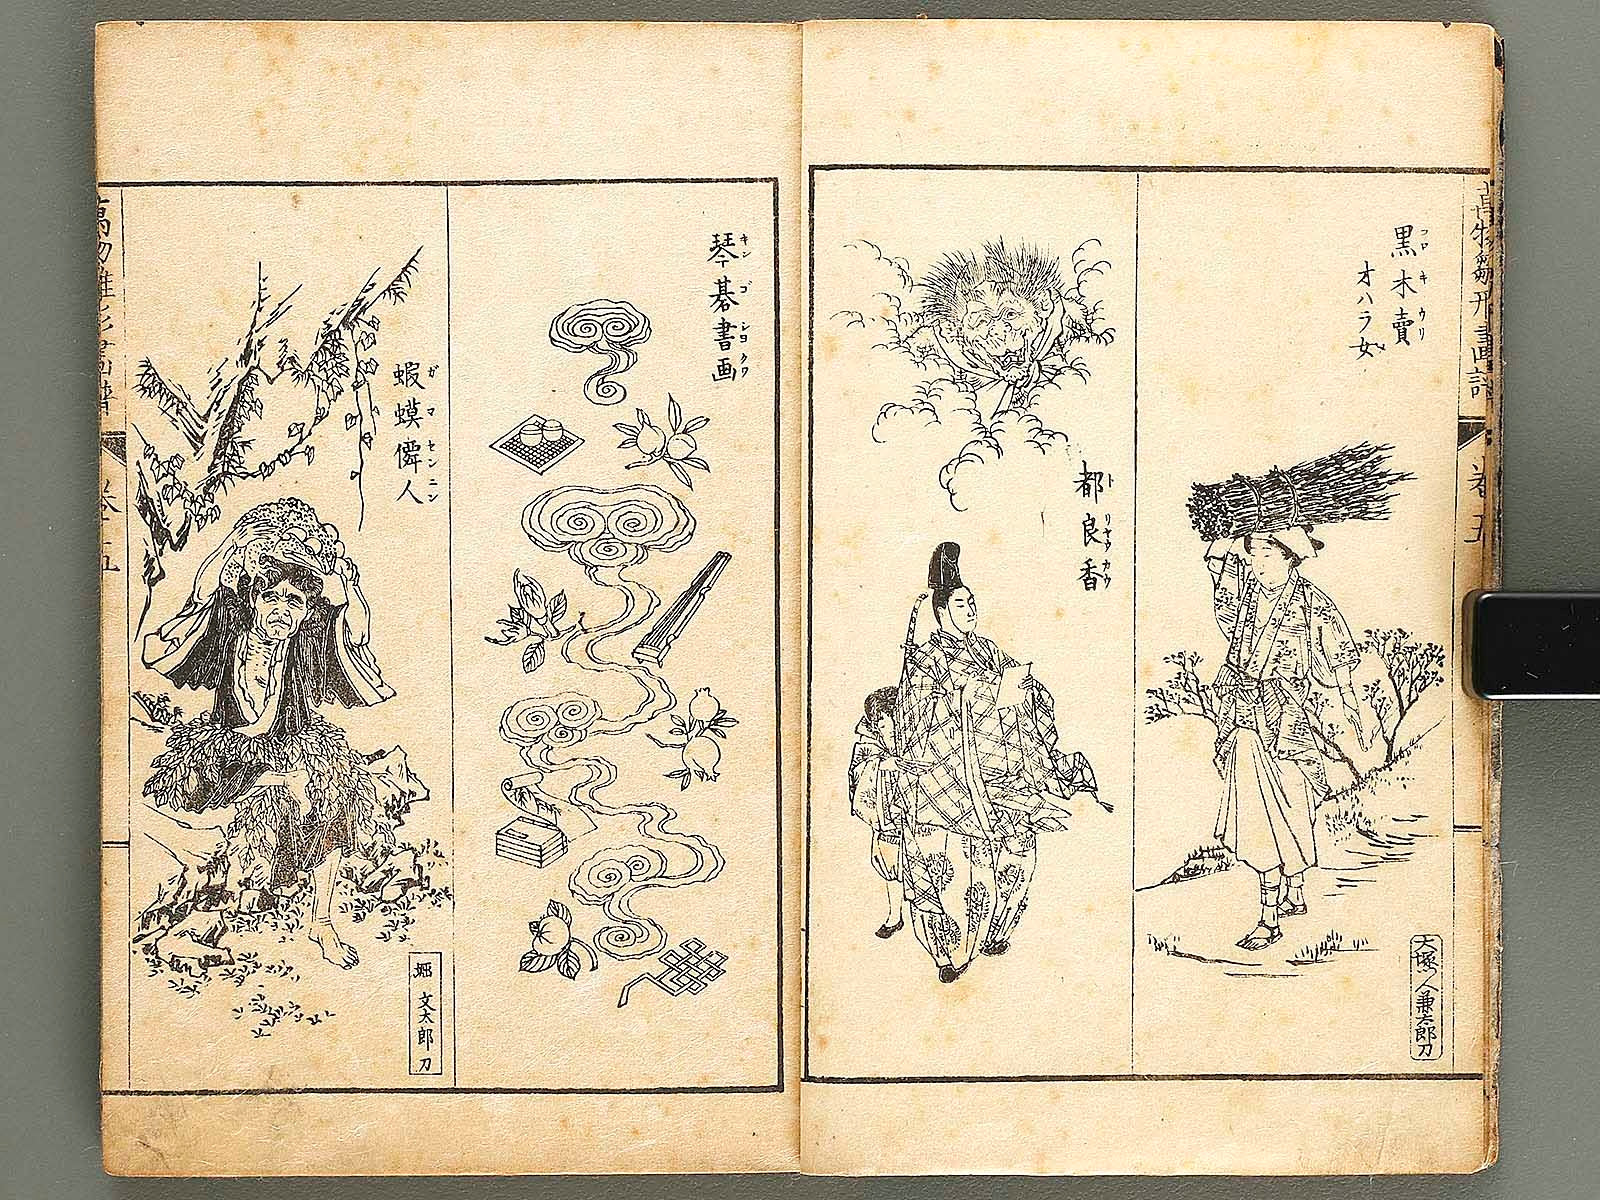 萬物雛形画譜
巻五
黒木賣
クロキウリ
オハラ女
メ
大塚人兼太郎刀
都良香
トリヤウカウ
琴碁書画
キンゴシヨクワ
蝦蟇僊人
ガマセンニン
堀文太郎刀
萬物雛形畫譜
巻五